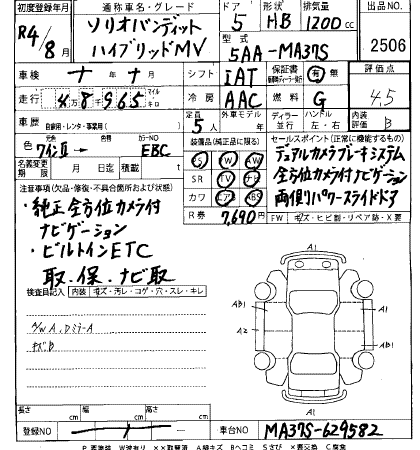 初度登録年月 通称車名・グレード ドア 形状 排気量 出品NO
R4/8月 ソリオバンディット ハイブリッドMV 5 HB 1200cc
型式 5AA-MA37S 2506
車検 年 月 シフト IAT 保証書 有 無 評価点
走行 4万8千965 マイル キロ 冷房 AAC 燃料 G 4.5
車歴 自家用・レンタ・事業用( ) 定員 5人 外車モデル年 ディーラー 並行 ハンドル 左・右 内装評価 B
色 ワインⅡ カラーNO EBC 装備品(純正品に限る) セールスポイント(正常に機能するもの)
名義変更期限 月 日 積載 t SR AW TV ナビ カワ エアB ABS
デュアルカメラブレーキシステム
全方位カメラ付ナビゲーション
両側パワースライドドア
注意事項(欠品・修復・不具合箇所および状態)
・純正全方位カメラ付
ナビゲーション
・ビルトインETC
取.保.ナビ取
R券 7,690円 FW キズ・ヒビ割・リペア跡・X要
検査員記入 内装 キズ・汚レ・コゲ・穴・スレ・キレ
A/W A, Dミラー A
キズB
A1
AB1 A1
A2 AB1
A1
長さ cm 幅 cm 高さ cm
登録NO 車台NO MA37S-629582